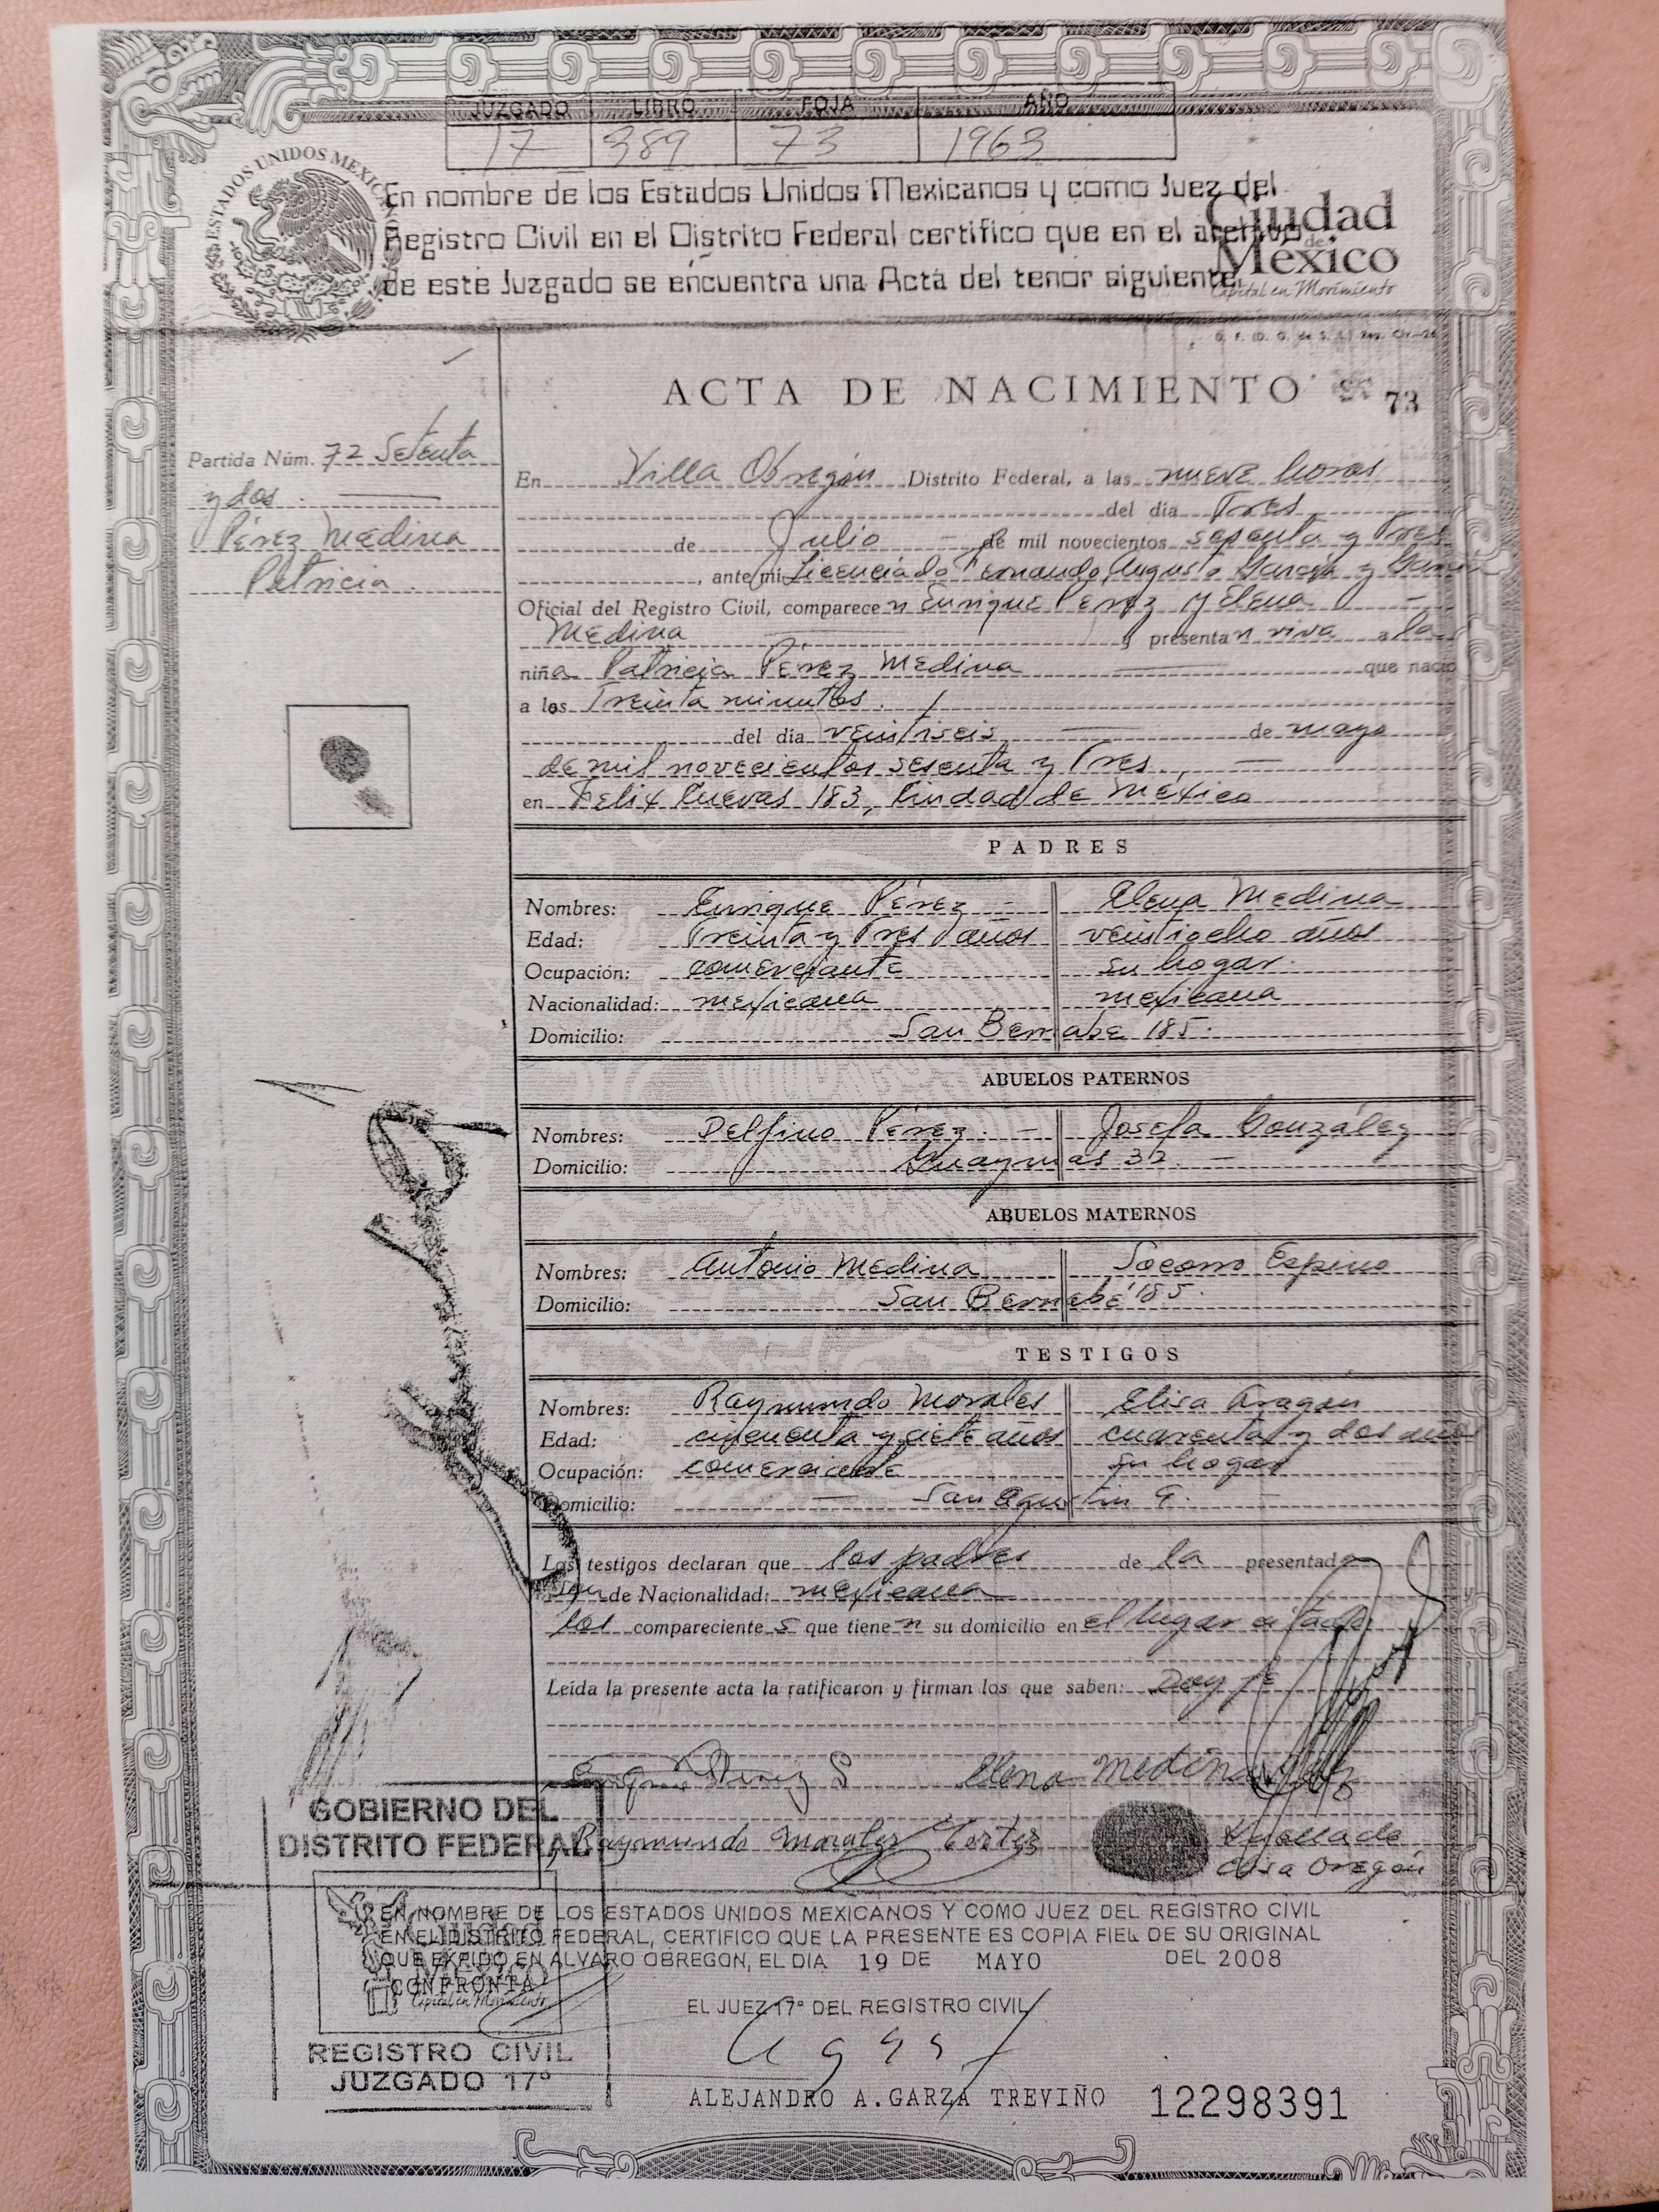 JUZGADO LIBRO FOJA AÑO
17 389 73 1963
ESTADOS UNIDOS MEXICANOS
En nombre de los Estados Unidos Mexicanos y como Juez del
Registro Civil en el Distrito Federal certifico que en el archivo
de este Juzgado se encuentra una Acta del tenor siguiente
Ciudad
de
México
Capital en Movimiento
ACTA DE NACIMIENTO 73
Partida Núm. 72 Setenta
y dos.
Pérez Medina
Patricia.
En Villa Obregón Distrito Federal, a las nueve horas
del día Tres
de Julio de mil novecientos sesenta y Tres
, ante mi Licenciado Fernando Augusto García y
Oficial del Registro Civil, comparecen Enrique Pérez y Elena
Medina y presentan viva a la
niña Patricia Pérez Medina que nació
a los Treinta minutos.
del día veintiseis de mayo
de mil novecientos sesenta y Tres.
en Felix Cuevas 183, Ciudad de México
PADRES
Nombres: Enrique Pérez Elena Medina
Edad: Treinta y Tres años veintiocho años
Ocupación: comerciante su hogar.
Nacionalidad: mexicana mexicana
Domicilio: San Bernabe 185.
ABUELOS PATERNOS
Nombres: Delfino Pérez. Josefa González
Domicilio: Guaymas 32.
ABUELOS MATERNOS
Nombres: Antonio Medina Socorro Espino
Domicilio: San Bernabé 185.
TESTIGOS
Nombres: Raymundo Morales Elisa Aragon
Edad: cincuenta y siete años cuarenta y dos años
Ocupación: comerciante su hogar
Domicilio: San Agustin 9.
Los testigos declaran que los padres de la presentada
son de Nacionalidad: mexicana
los comparecientes que tienen su domicilio en el lugar citado.
Leída la presente acta la ratificaron y firman los que saben: Doy fé
Enrique Pérez G Elena Medina
Raymundo Morales Cortez Huella de
Elisa Aragón
GOBIERNO DEL
DISTRITO FEDERAL
EN NOMBRE DE LOS ESTADOS UNIDOS MEXICANOS Y COMO JUEZ DEL REGISTRO CIVIL
EN EL DISTRITO FEDERAL, CERTIFICO QUE LA PRESENTE ES COPIA FIEL DE SU ORIGINAL
QUE EXPIDO EN ALVARO OBREGON, EL DIA 19 DE MAYO DEL 2008
Ciudad
de
México
Capital en Movimiento
CONFRONTA
EL JUEZ 17º DEL REGISTRO CIVIL
REGISTRO CIVIL
JUZGADO 17º
ALEJANDRO A. GARZA TREVIÑO 12298391